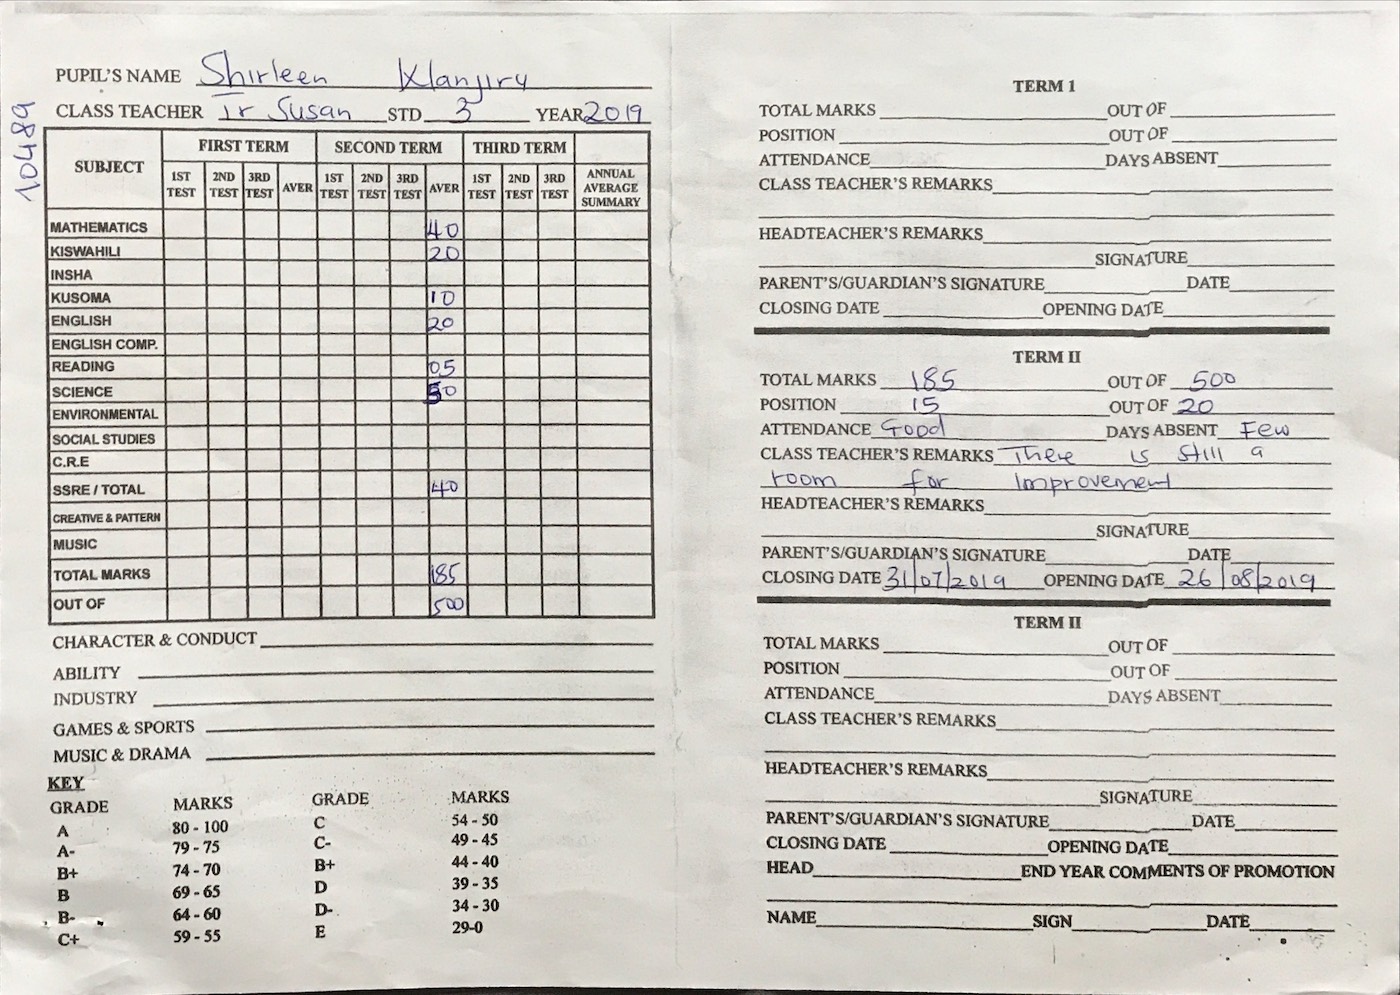 PUPIL'S NAME Shirleen Wanjiru
CLASS TEACHER Tr Susan STD 3 YEAR 2019
10489
SUBJECT FIRST TERM SECOND TERM THIRD TERM
1ST TEST 2ND TEST 3RD TEST AVER 1ST TEST 2ND TEST 3RD TEST AVER 1ST TEST 2ND TEST 3RD TEST ANNUAL AVERAGE SUMMARY
MATHEMATICS 40
KISWAHILI 20
INSHA
KUSOMA 10
ENGLISH 20
ENGLISH COMP.
READING 05
SCIENCE 50
ENVIRONMENTAL
SOCIAL STUDIES
C.R.E
SSRE / TOTAL 40
CREATIVE & PATTERN
MUSIC
TOTAL MARKS 185
OUT OF 500
CHARACTER & CONDUCT
ABILITY
INDUSTRY
GAMES & SPORTS
MUSIC & DRAMA
KEY
GRADE MARKS GRADE MARKS
A 80 - 100 C 54 - 50
A- 79 - 75 C- 49 - 45
B+ 74 - 70 B+ 44 - 40
B 69 - 65 D 39 - 35
B- 64 - 60 D- 34 - 30
C+ 59 - 55 E 29-0
TERM 1
TOTAL MARKS OUT OF
POSITION OUT OF
ATTENDANCE DAYS ABSENT
CLASS TEACHER'S REMARKS
HEADTEACHER'S REMARKS
SIGNATURE
PARENT'S/GUARDIAN'S SIGNATURE DATE
CLOSING DATE OPENING DATE
TERM II
TOTAL MARKS 185 OUT OF 500
POSITION 15 OUT OF 20
ATTENDANCE Good DAYS ABSENT Few
CLASS TEACHER'S REMARKS There is still a
room for improvement
HEADTEACHER'S REMARKS
SIGNATURE
PARENT'S/GUARDIAN'S SIGNATURE DATE
CLOSING DATE 31/07/2019 OPENING DATE 26/08/2019
TERM II
TOTAL MARKS OUT OF
POSITION OUT OF
ATTENDANCE DAYS ABSENT
CLASS TEACHER'S REMARKS
HEADTEACHER'S REMARKS
SIGNATURE
PARENT'S/GUARDIAN'S SIGNATURE DATE
CLOSING DATE OPENING DATE
HEAD END YEAR COMMENTS OF PROMOTION
NAME SIGN DATE